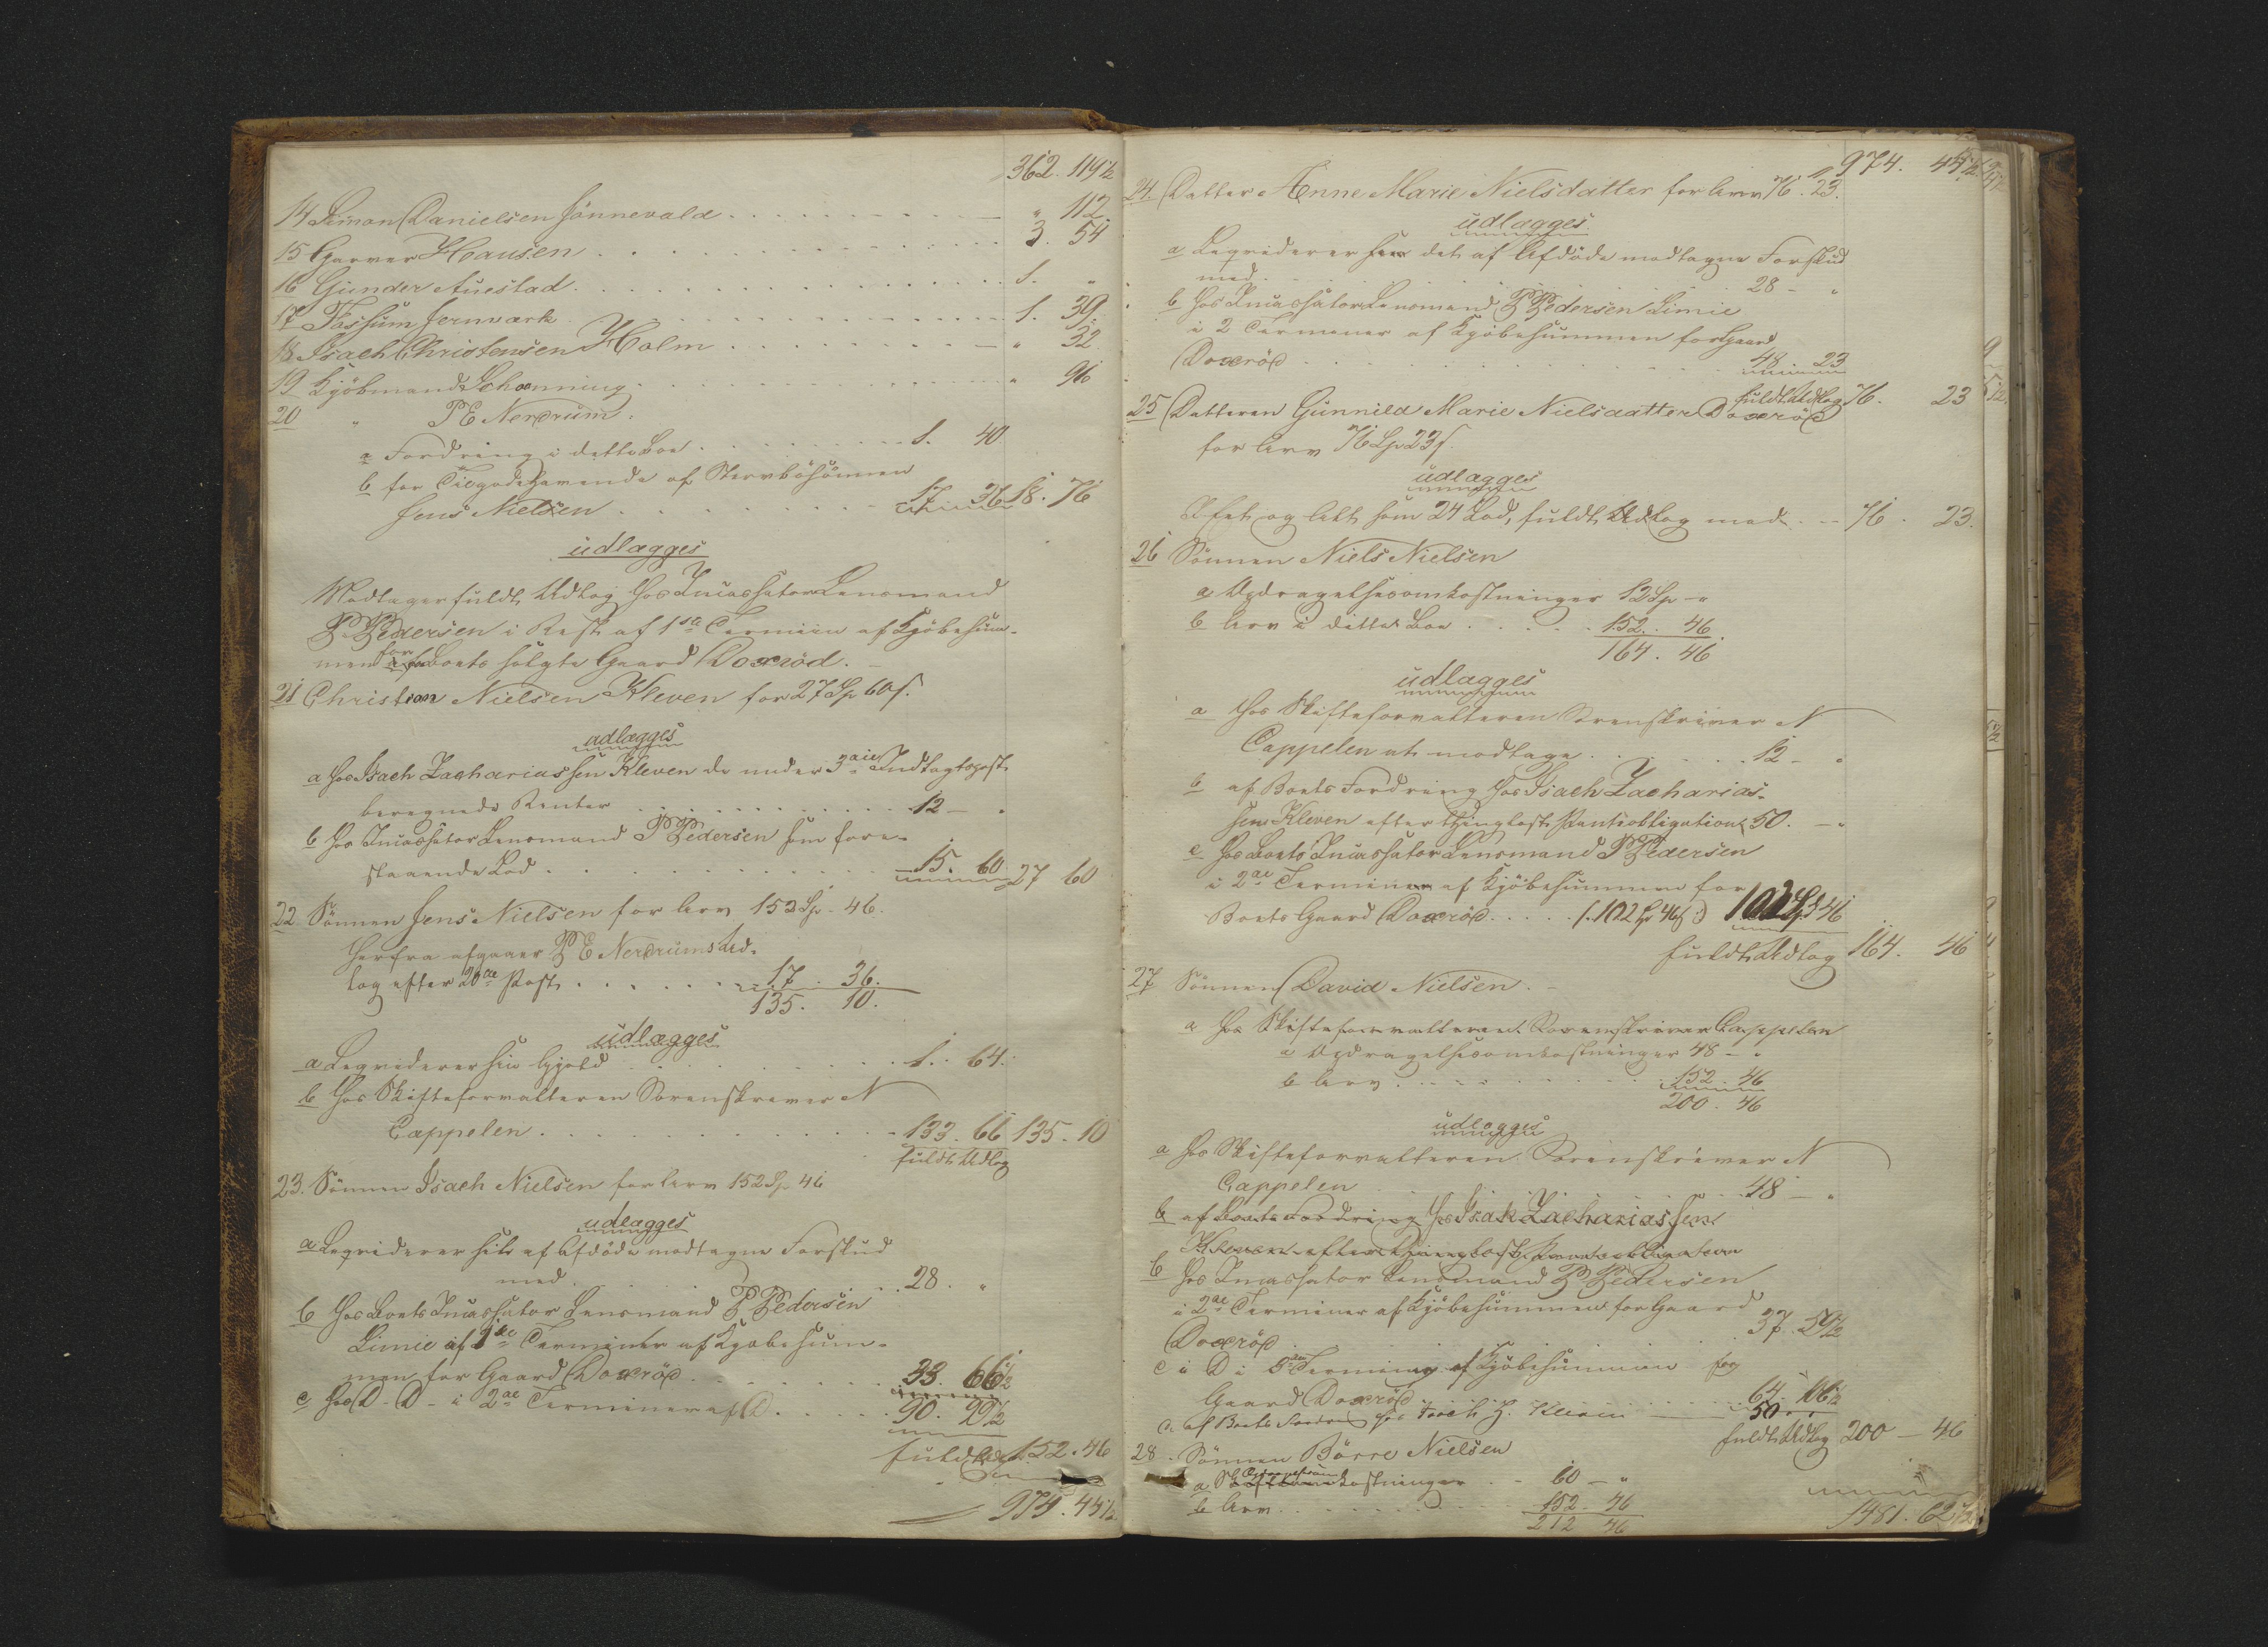 362. 119½
14 Simon Danielsen Sønnevald . . . . " 112.
15 Garver Hansen . . . . 3. 54
16 Gunder Auestad . . . . 1. "
17 Fossum Jernværk . . . . 1. 39.
18 Isach Christensen Holm . . . . " 32
19 Kjøbmand Schanning . . . . " 96
20 " P E Nerdrum.
a Fordring i dette Boe . . . . 1. 40
b for Tilgodehavende af Stervbøsønnen
Jens Nielsen . . . . 17. 36 18. 76
udlægges
Modtager fuldt Udlæg hos Incassator Lensmand
P Pedersen i Rest af 1ste Termin af Kjøbesum-
men for Boets solgte Gaard Doxrød. –
21 Christian Nielsen Kleven for 27 Sp 60 s.
udlægges
a hos Isach Zachariassen Kleven de under 3die Indtægtspost
beregnede Renter . . . . 12 – "
b hos Incassator Lensmand P Pedersen som fore-
staaende Lod . . . . 15. 60 27 60
22 Sønnen Jens Nielsen for Arv 152 Sp. 46.
Herfra afgaaer P E Nerdrums Ud-
læg efter 20de Post . . . . 17. 36.
135. 10.
udlægges
a Liqviderer sin Gjæld . . . . 1. 64.
b hos Skifteforvalteren Sorenskriver N
Cappelen . . . . 133. 66 135. 10
fuldt Udlæg
23. Sønnen Isach Nielsen for Arv 152 Sp 46
udlægges
a Liqviderer sit af Afdøde modtagne Forskud
med . . . . 28. "
b hos Boets Incassator Lensmand P Pedersen
Limie af 1ste Terminer af Kjøbesum-
men for Gaard Doxrød . . . . 33. 66½
c hos D. D – i 2de Terminer af D . . . . 90. 99½
fuldt Udlæg 152. 46
974. 44½

974. 44½
24. Datter Anne Marie Nielsdatter for Arv 76. 23.
udlægges
a Liqviderer det af Afdøde modtagne Forskud
med . . . . 28 – "
b hos Incassator Lensmand P Pedersen Limie
i 2 Terminer af Kjøbesummen for Gaard
Doxrød . . . . 48. 23
fuldt Udlæg 76. 23
25 Datteren Gunnild Marie Nielsdatter Doxrød
for Arv 76 Sp 23 s.
udlægges
I Et og Alt som 24 Lod, fuldt Udlæg med . – 76. 23.
26 Sønnen Niels Nielsen
a Opdragelsesomkostninger 12 Sp – "
b Arv i dette Boe . . . . 152. 46.
164. 46
udlægges
a hos Skifteforvalteren Sorenskriver N
Cappelen at modtage . . . . 12 – "
b af Boets Fordring hos Isach Zacharias-
sen Kleven efter thinglæst Pantobligation 50. – "
c hos Boets Incassator Lensmand P Pedersen
i 2de Terminer af Kjøbesummen for
Boets Gaard Doxrød . . . . (: 102 Sp 46 s :) 102 Sp 46
fuldt Udlæg 164. 46
27 Sønnen David Nielsen. –
a hos Skifteforvalteren Sorenskriver Cappelen
a Opdragelsesomkostninger 48 – "
b Arv . . . . 152. 46
200. 46
udlægges
a hos Skifteforvalteren Sorenskriver N
Cappelen . . . . 48 – "
b af Boets Fordring hos Isak Zachariassen
Kleven efter thinglæst Pantobligation
b hos Incassator Lensmand P Pedersen
i 2de Terminer af Kjøbesummen for Gaard
Doxrød . . . . 37. 59½
c i D i 5te Termin af Kjøbesummen for
Gaard Doxrød . . . . 64. 106½
c. af Boets Fordring hos Isach Z. Kleven — 50. "
fuldt Udlæg 200 – 46
28. Sønnen Børre Nielsen
a Opdragelsesomkostninger . – 60 – "
b Arv . . . . 152. 46
212 46
1481. 62½